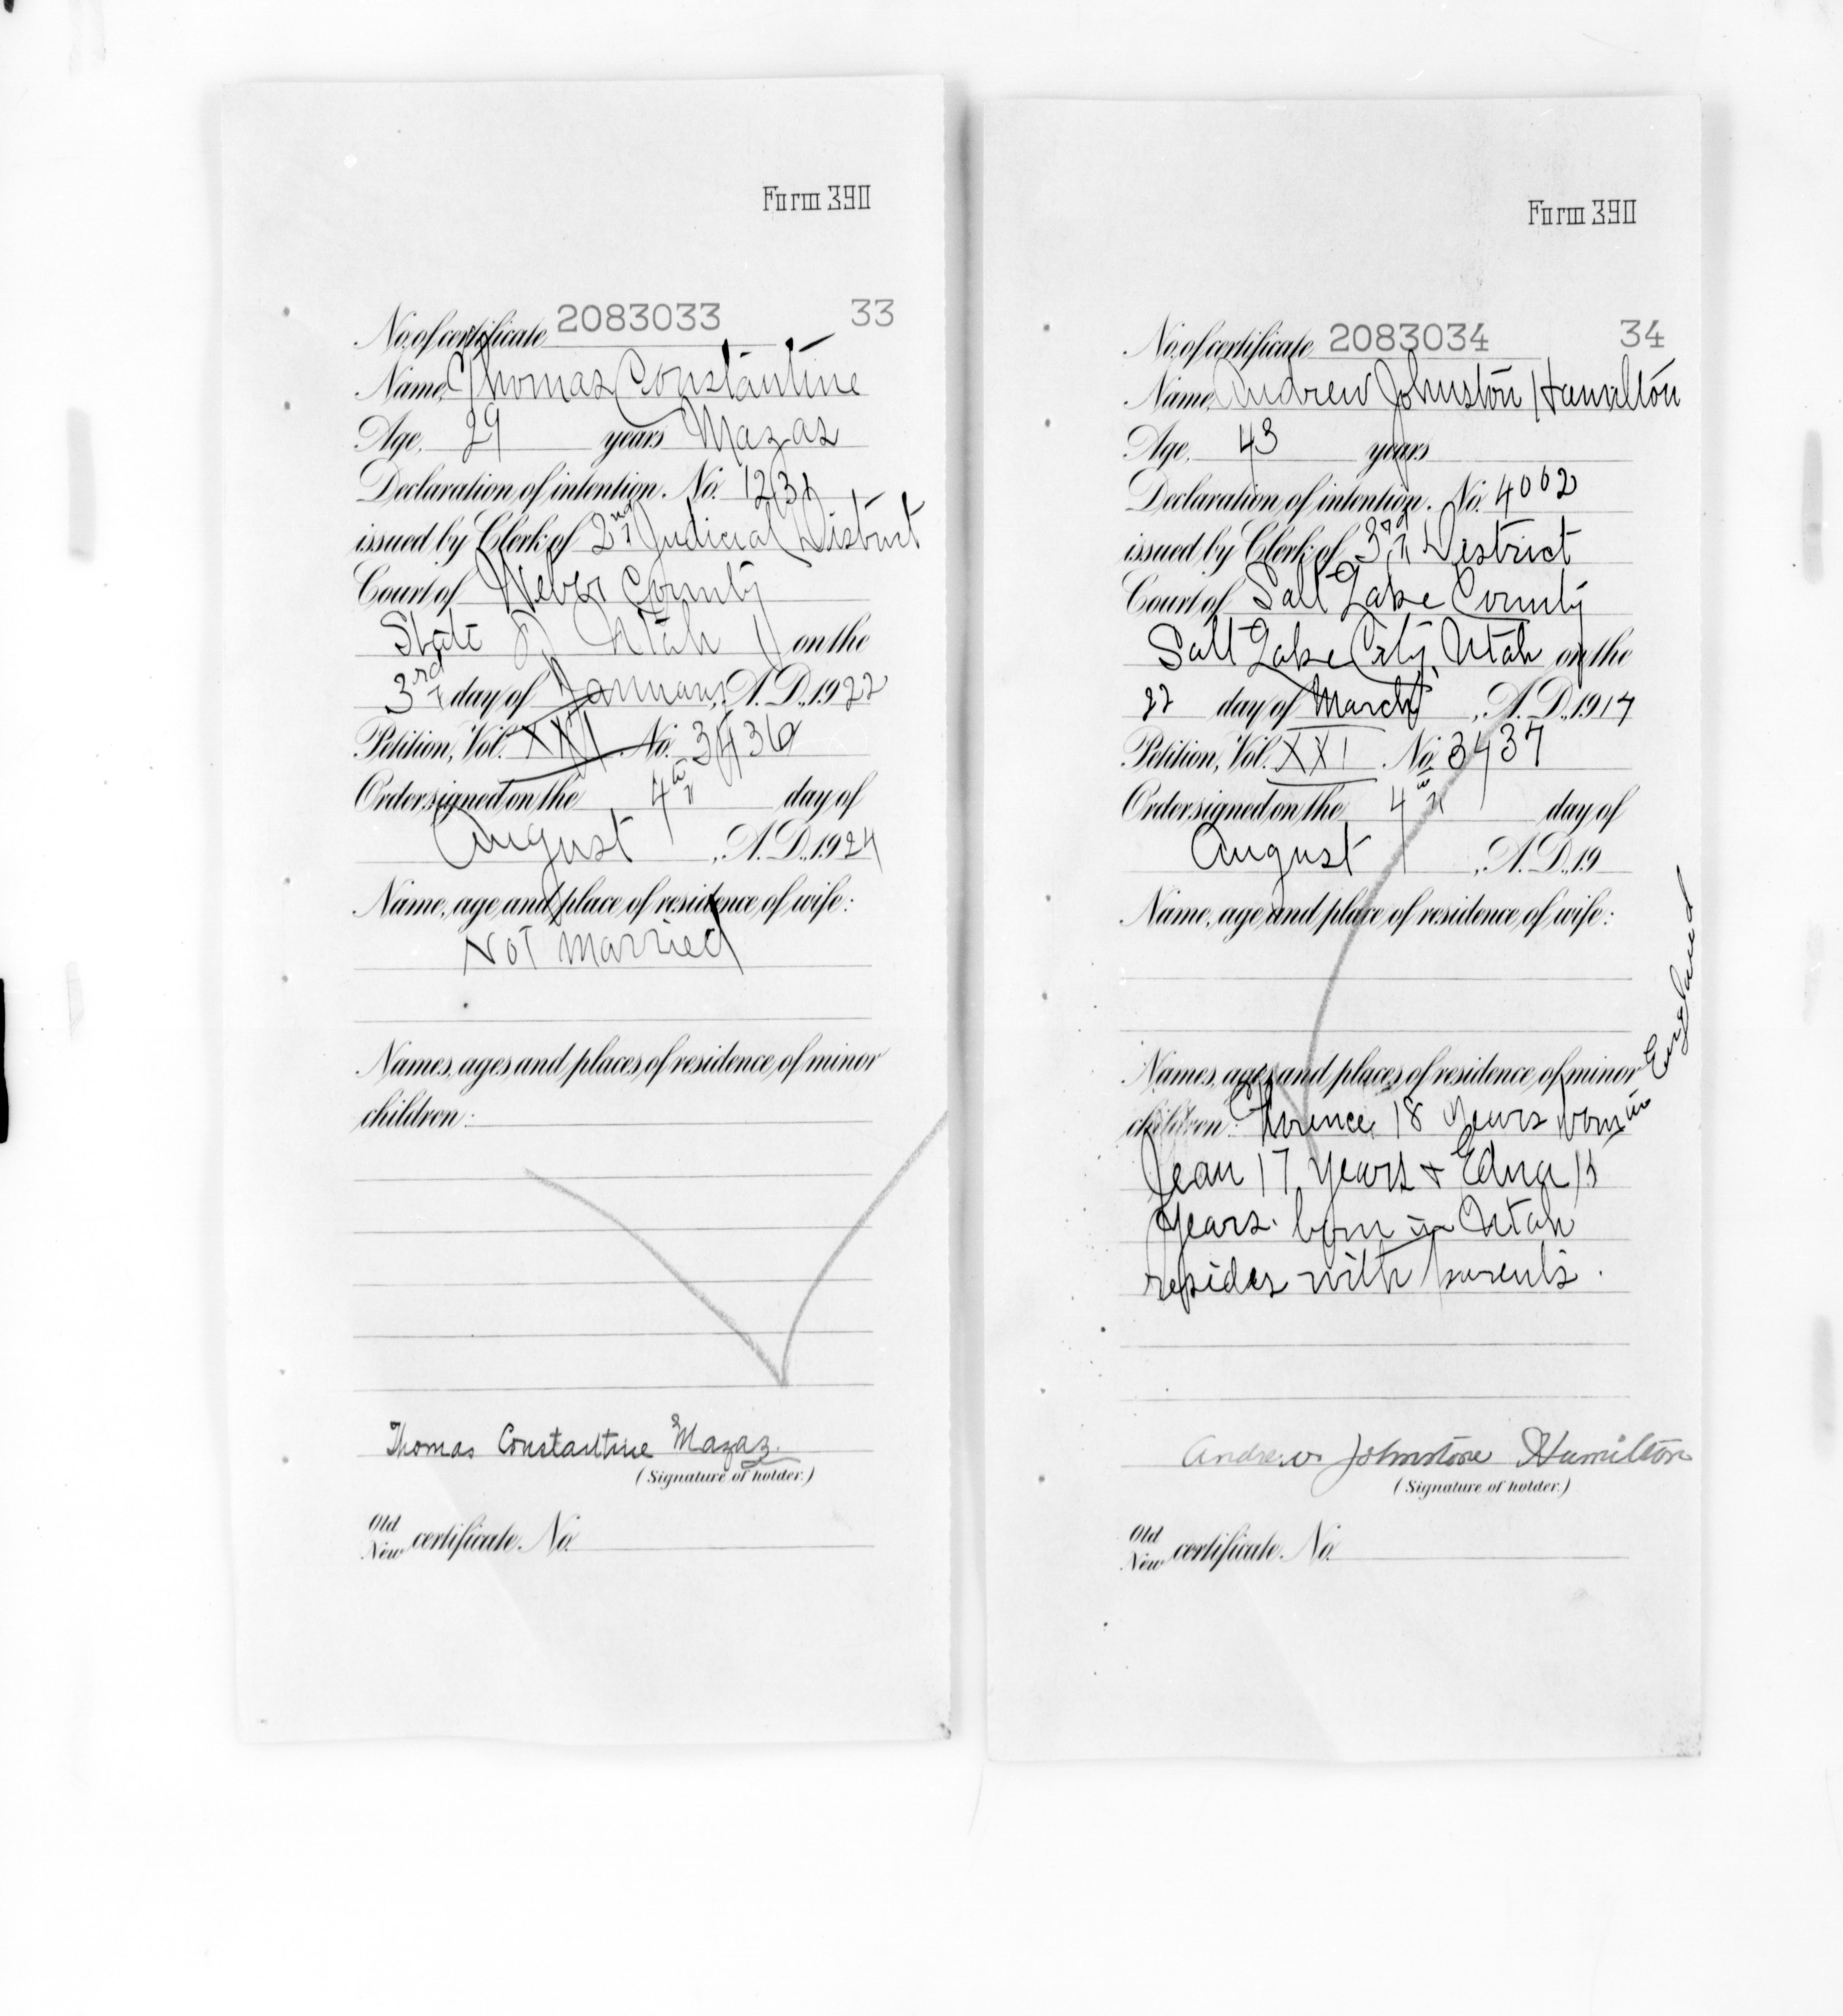 Form 390
No. of certificate 2083033 33
Name, Thomas Constantine
Age, 29 years Mazas
Declaration of intention. No. 1232
issued by Clerk of 2nd Judicial District
Court of Weber County
State of Utah on the
3rd day of January, A. D., 1922
Petition, Vol. XXI No. 3436
Order signed on the 4th day of
August, A. D., 1924
Name, age and place of residence of wife:
Not Married
Names, ages and places of residence of minor
children:
Thomas Constantine Mazaz.
(Signature of holder.)
Old
New certificate. No.
Form 390
No. of certificate 2083034 34
Name, Andrew Johnston Hamilton
Age, 43 years
Declaration of intention. No. 4002
issued by Clerk of 3rd District
Court of Salt Lake County
Salt Lake City, Utah on the
22 day of March, A. D., 1917
Petition, Vol. XXI No. 3437
Order signed on the 4th day of
August, A. D., 19
Name, age and place of residence of wife:
Names, ages and places of residence of minor
children: Florence, 18 years born in England
Jean 17 years & Edna 15
years. born in Utah
resides with parents.
Andrew Johnstone Hamilton
(Signature of holder.)
Old
New certificate. No.